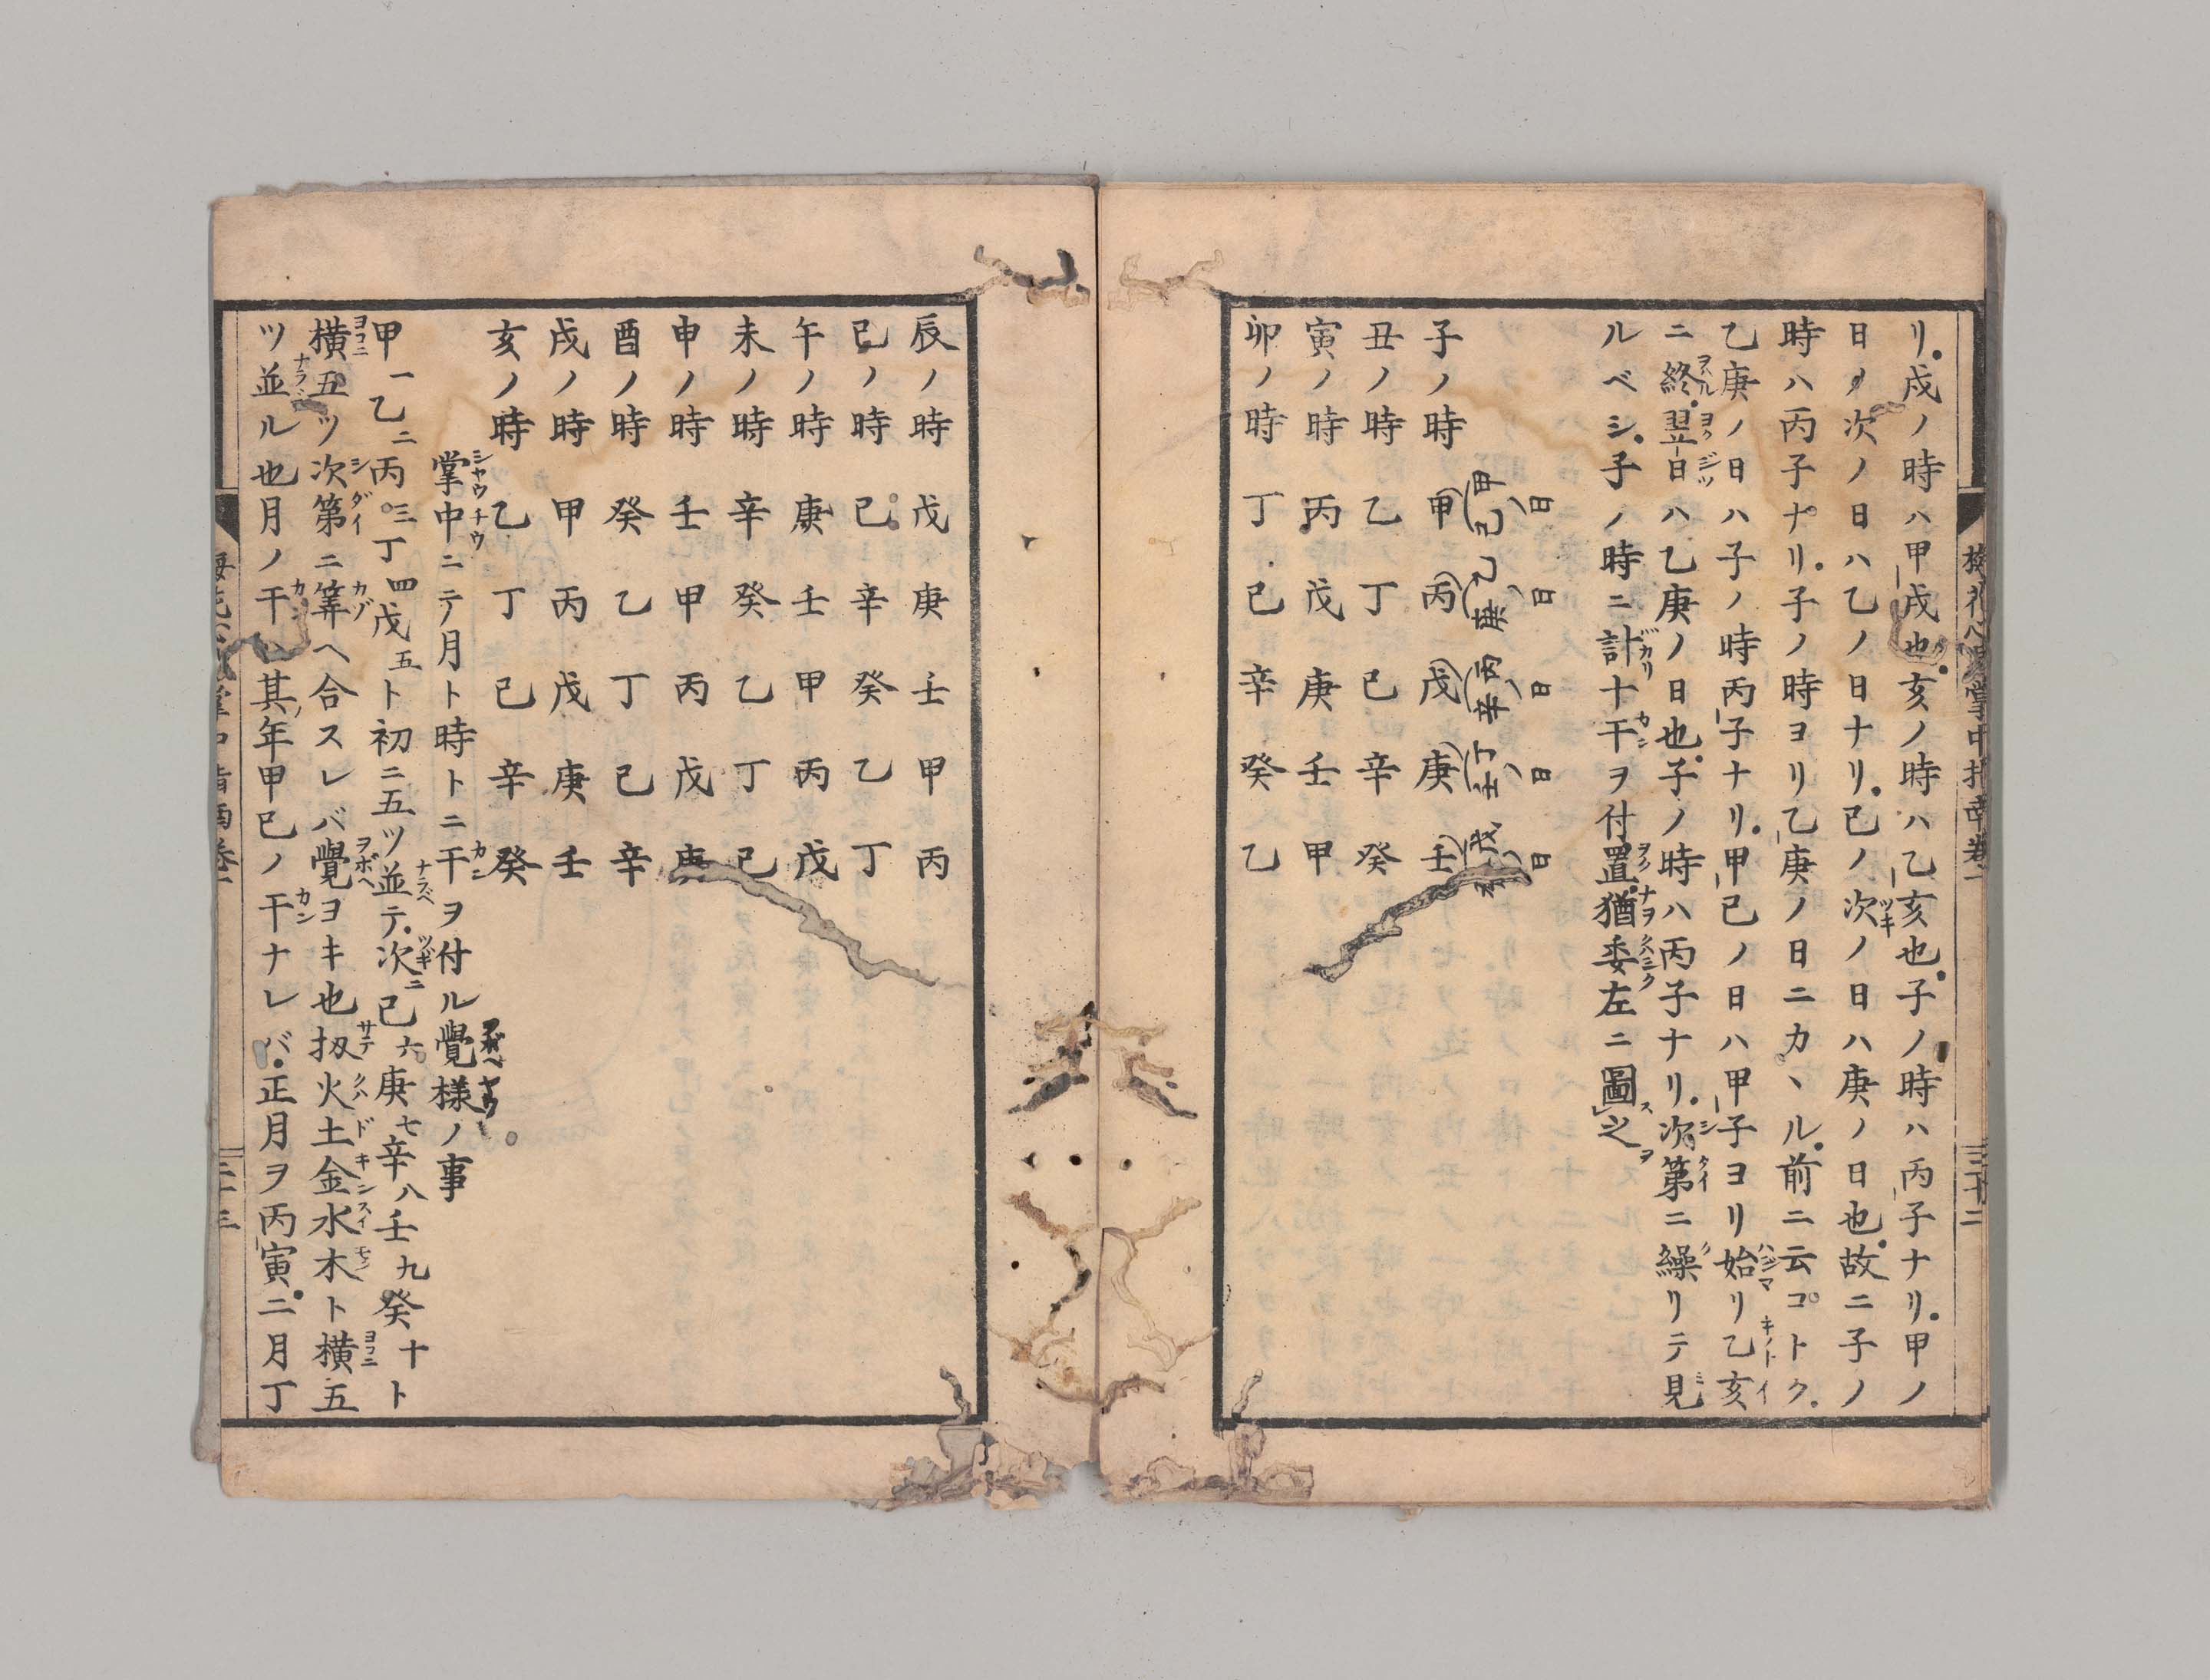 梅花心易掌中指南卷一　三十二
リ。戌ノ時ハ甲戌也。亥ノ時ハ乙亥也。子ノ時ハ丙子ナリ。甲ノ
日ノ次ノ日ハ乙ノ日ナリ。己ノ次ノ日ハ庚ノ日也。故ニ子ノ
時ハ丙子ナリ。子ノ時ヨリ乙庚ノ日ニカヽル。前ニ云コトク。
乙庚ノ日ハ子ノ時丙子ナリ。甲己ノ日ハ甲子ヨリ始リ乙亥
ニ終。翌日ハ乙庚ノ日也。子ノ時ハ丙子ナリ。次第ニ繰リテ見
ルベシ。子ノ時ニ計十干ヲ付置。猶委左ニ圖之
甲己ノ日　乙庚ノ日　丙辛ノ日　丁壬ノ日　戊癸ノ日
子ノ時　甲　丙　戊　庚　壬
丑ノ時　乙　丁　己　辛　癸
寅ノ時　丙　戊　庚　壬　甲
卯ノ時　丁　己　辛　癸　乙
辰ノ時　戊　庚　壬　甲　丙
巳ノ時　己　辛　癸　乙　丁
午ノ時　庚　壬　甲　丙　戊
未ノ時　辛　癸　乙　丁　己
申ノ時　壬　甲　丙　戊　庚
酉ノ時　癸　乙　丁　己　辛
戌ノ時　甲　丙　戊　庚　壬
亥ノ時　乙　丁　己　辛　癸
掌中ニテ月ト時トニ干ヲ付ル覺様ノ事
甲一乙二丙三丁四戊五ト初ニ五ツ並テ。次ニ己六庚七辛八壬九癸十ト
横五ツ次第ニ筭ヘ合スレバ覺ヨキ也扨火土金水木ト横五
ツ並ル也月ノ干ハ其年甲己ノ干ナレバ。正月ヲ丙寅。二月丁